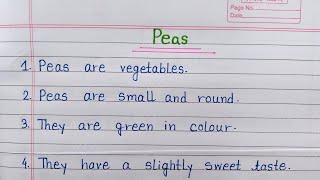 Page No.
Date.
Peas
1. Peas are vegetables.
2. Peas are small and round.
3. They are green in colour.
4. They have a slightly sweet taste.